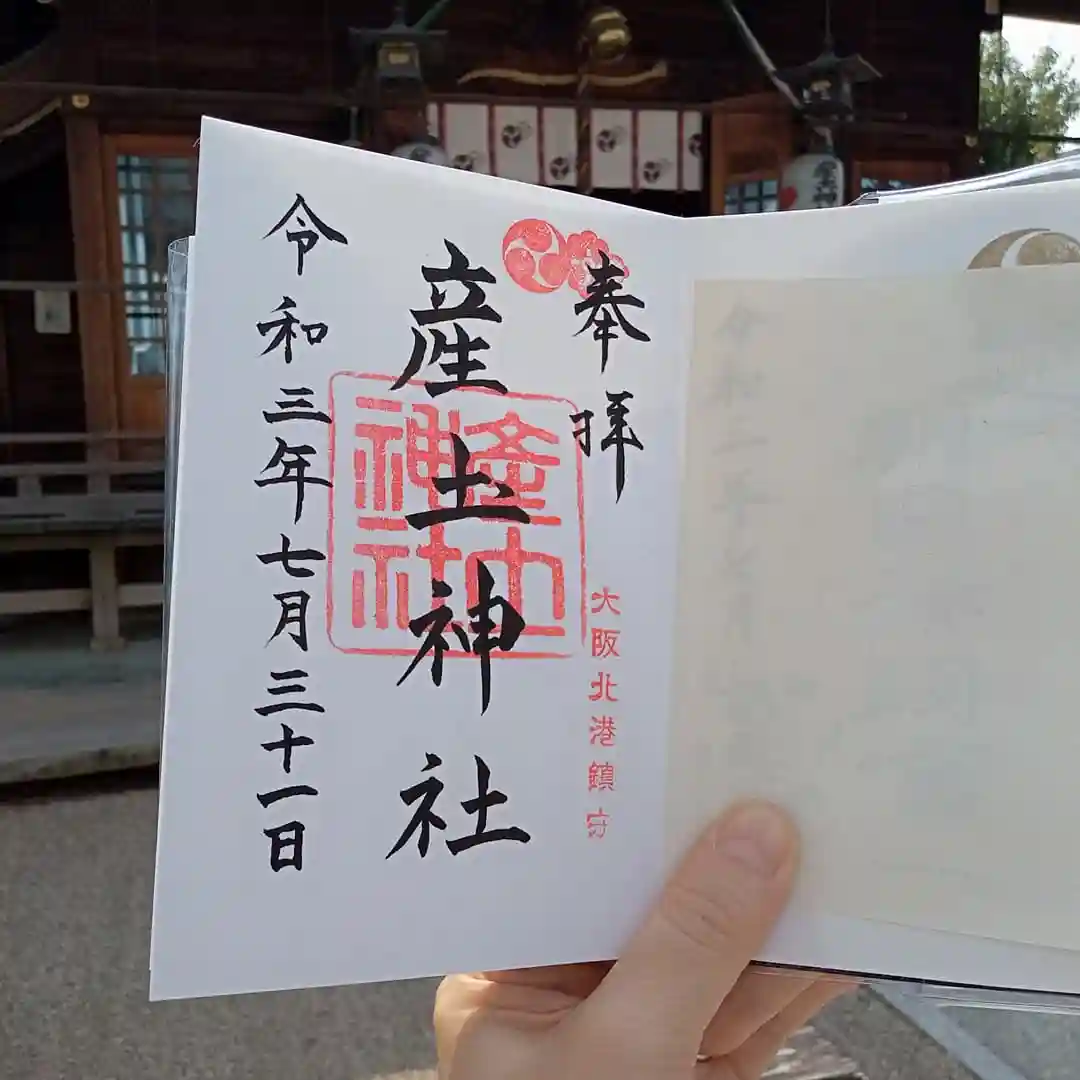 奉拝
大阪北港鎮守
産土神社
産土神社
令和三年七月三十一日